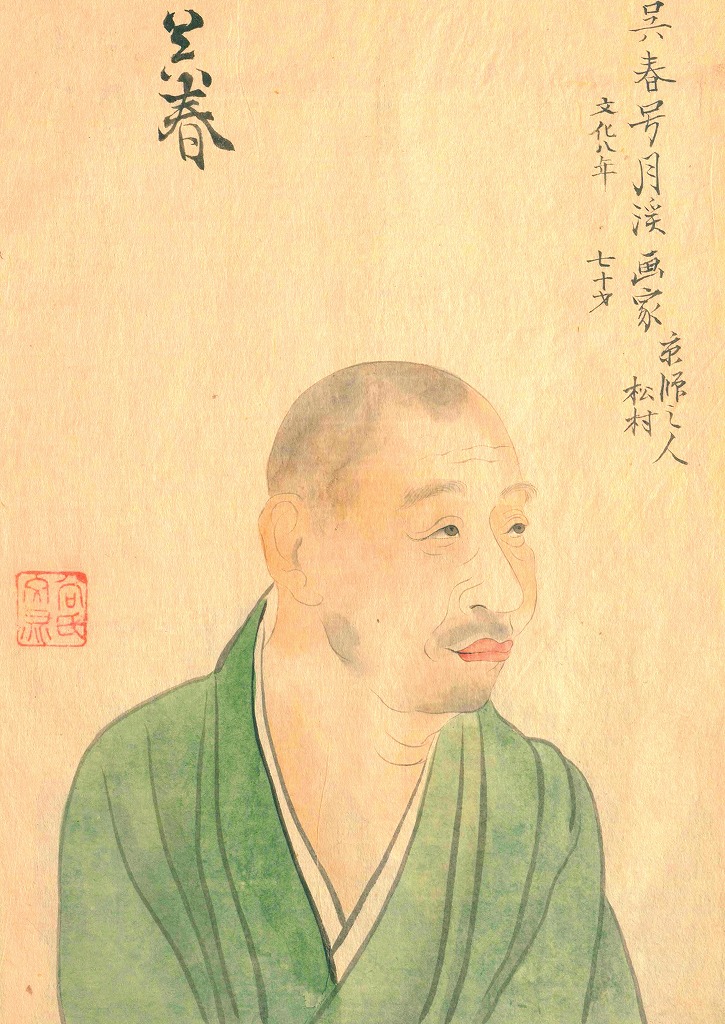 呉春号月渓画家
京師之人
松村
文化八年 七十才
呉春